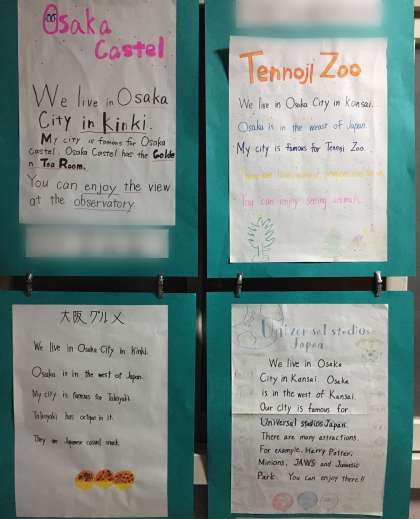 Osaka
Castel
We live in Osaka
City in Kinki.
My city is famous for Osaka
Castel. Osaka Castel has the Golde
n Tea Room.
You can enjoy the view
at the observatory.
Tennoji Zoo
We live in Osaka City in Kansai.
Osaka is in the weast of Japan.
My city is famous for Tennoji Zoo.
You can enjoy seeing animals.
大阪グルメ
We live in Osaka City in Kinki.
Osaka is in the west of Japan.
My city is famous for Takoyaki.
Takoyaki has octpus in it.
They are Japanese casual snack.
Univer sal studios
Japan
We live in Osaka
City in Kansai. Osaka
is in the west of Kansai.
Our city is famous for
Universal studios Japan.
There are many attractions.
For example, Harry Potter,
Minions, JAWS and Jurassic
Park. You can enjoy there!!